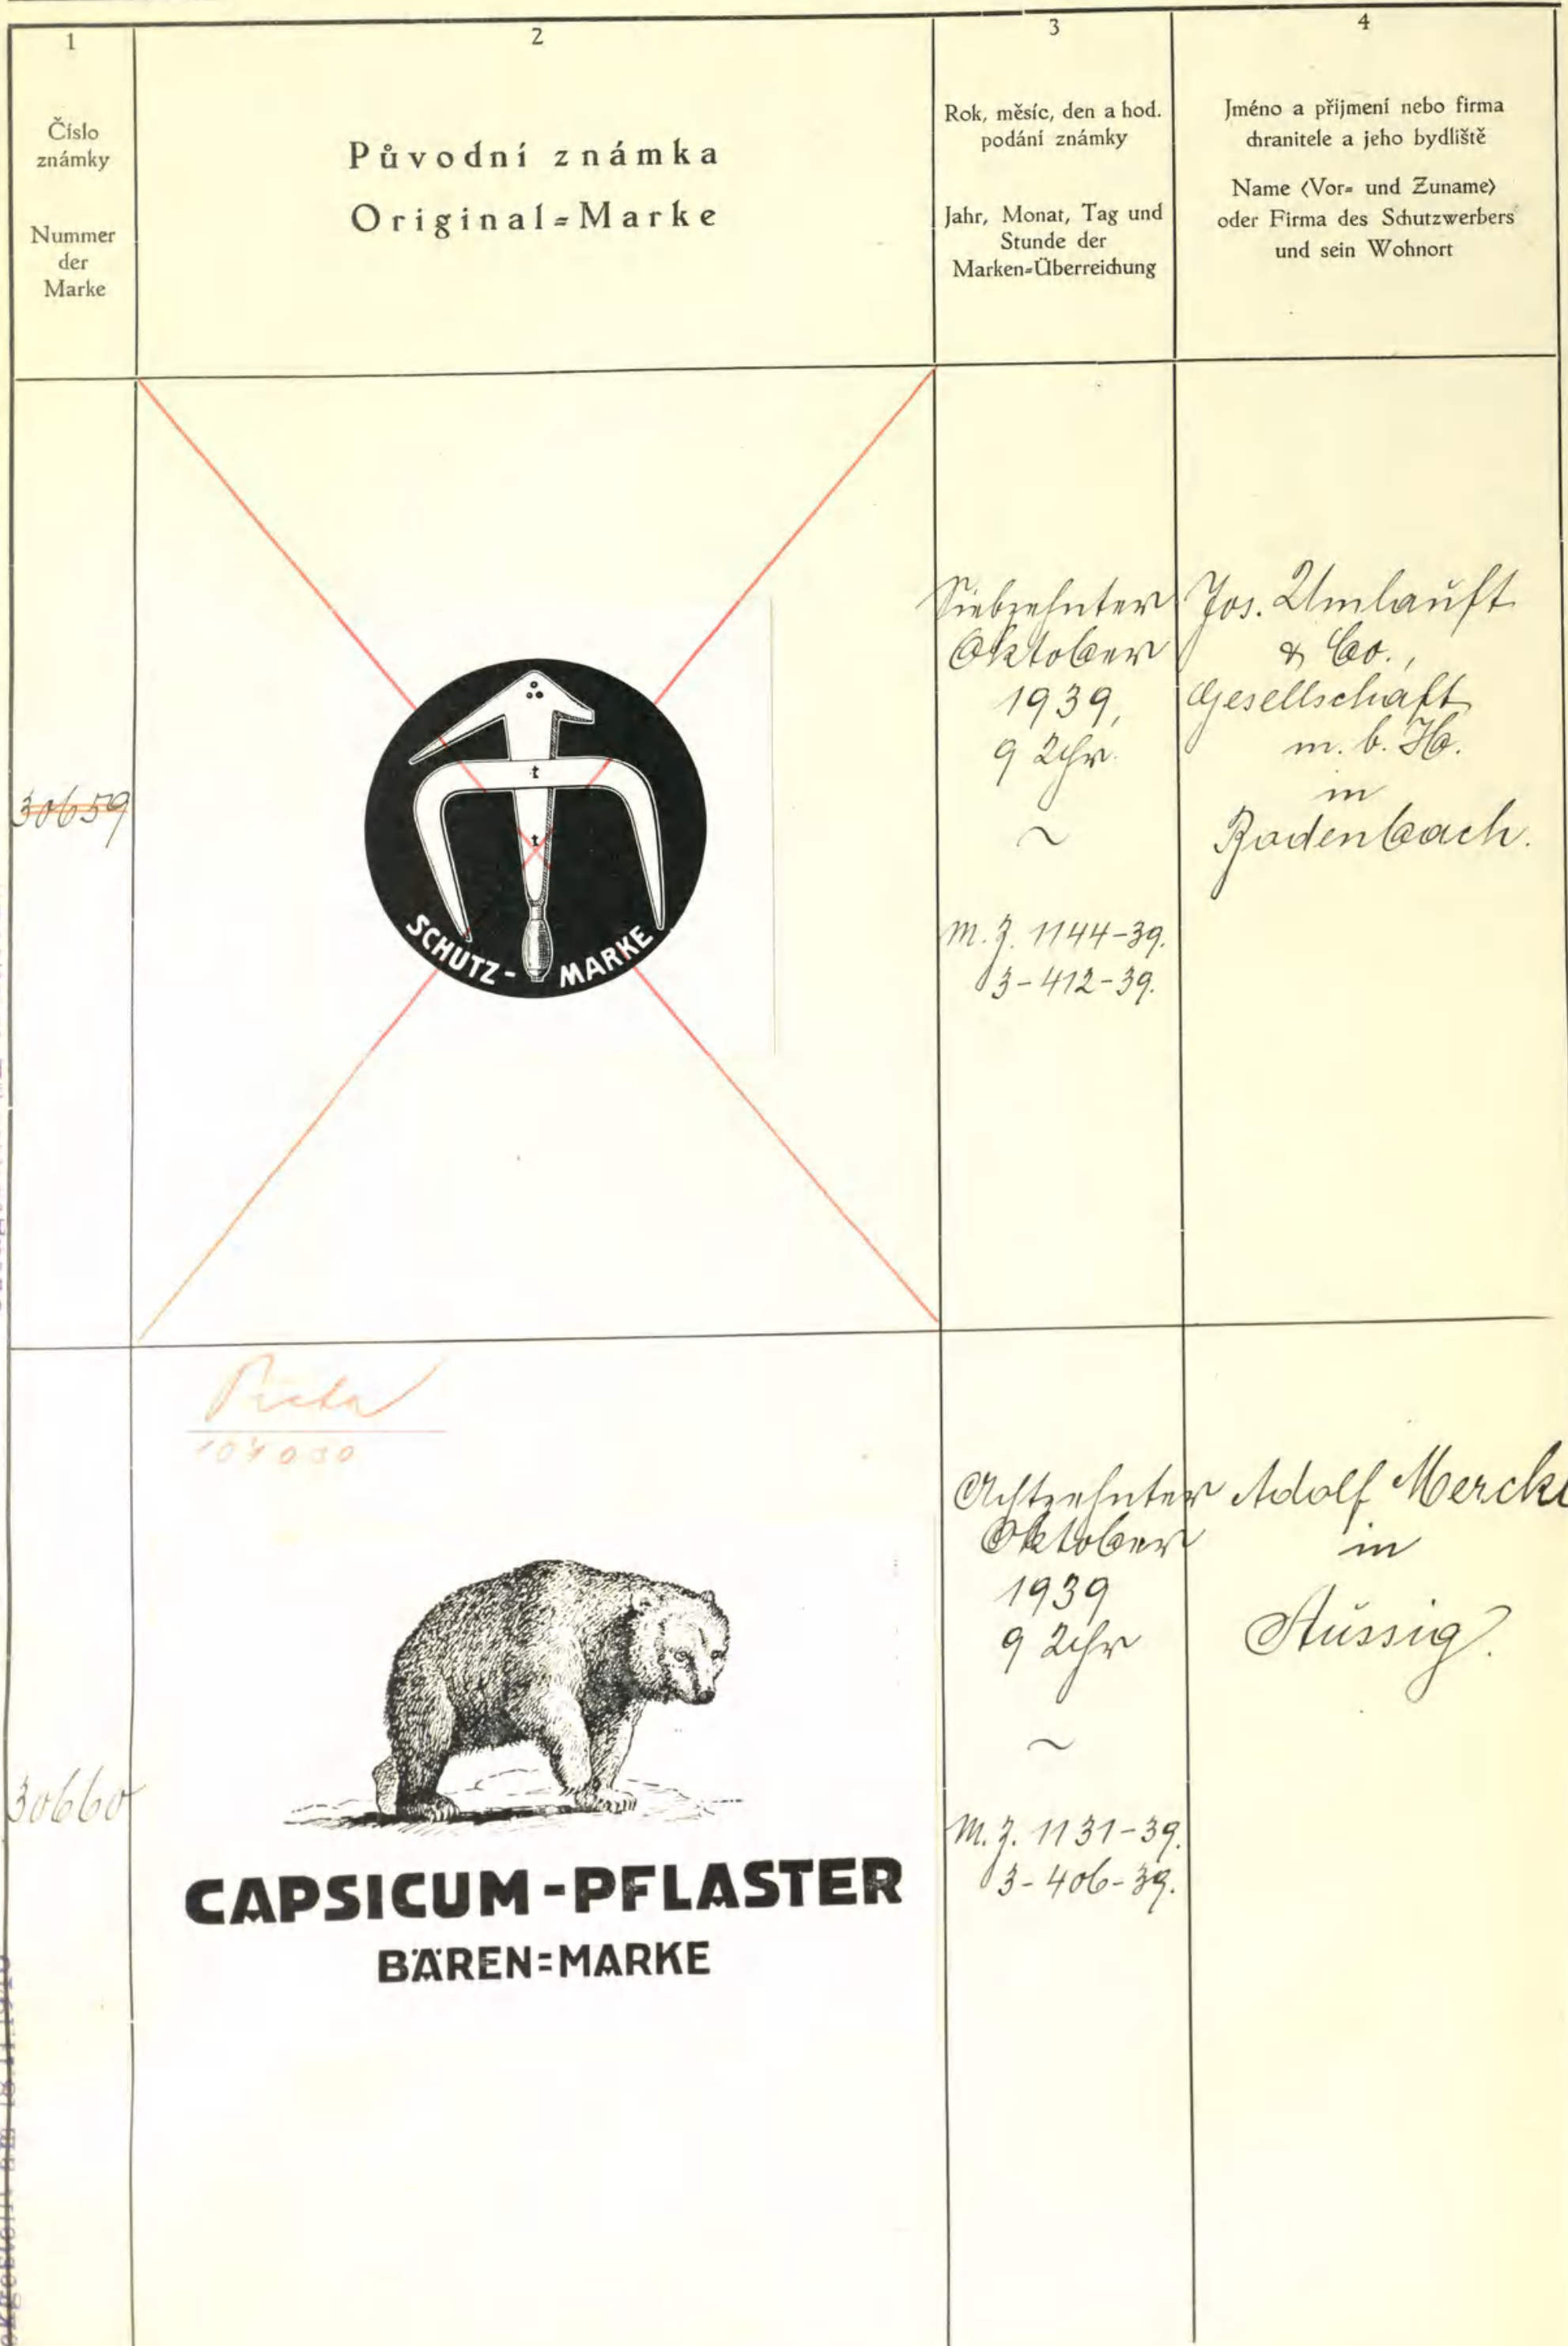 1
Číslo
známky
Nummer
der
Marke
2
Původní známka
Original=Marke
3
Rok, měsíc, den a hod.
podání známky
Jahr, Monat, Tag und
Stunde der
Marken=Überreichung
4
Jméno a přijmení nebo firma
chranitele a jeho bydliště
Name (Vor= und Zuname)
oder Firma des Schutzwerbers
und sein Wohnort
30659
t
t
SCHUTZ - MARKE
Siebzehnter
Oktober
1939,
9 Uhr.
~
M. Z. 1144-39.
3-412-39.
Jos. Umlauft
& Co.,
Gesellschaft
m. b. H.
in
Bodenbach.
30660
CAPSICUM-PFLASTER
BÄREN=MARKE
Achtzehnter
Oktober
1939
9 Uhr
~
M. Z. 1131-39.
3-406-39.
Adolf
in
Aussig.